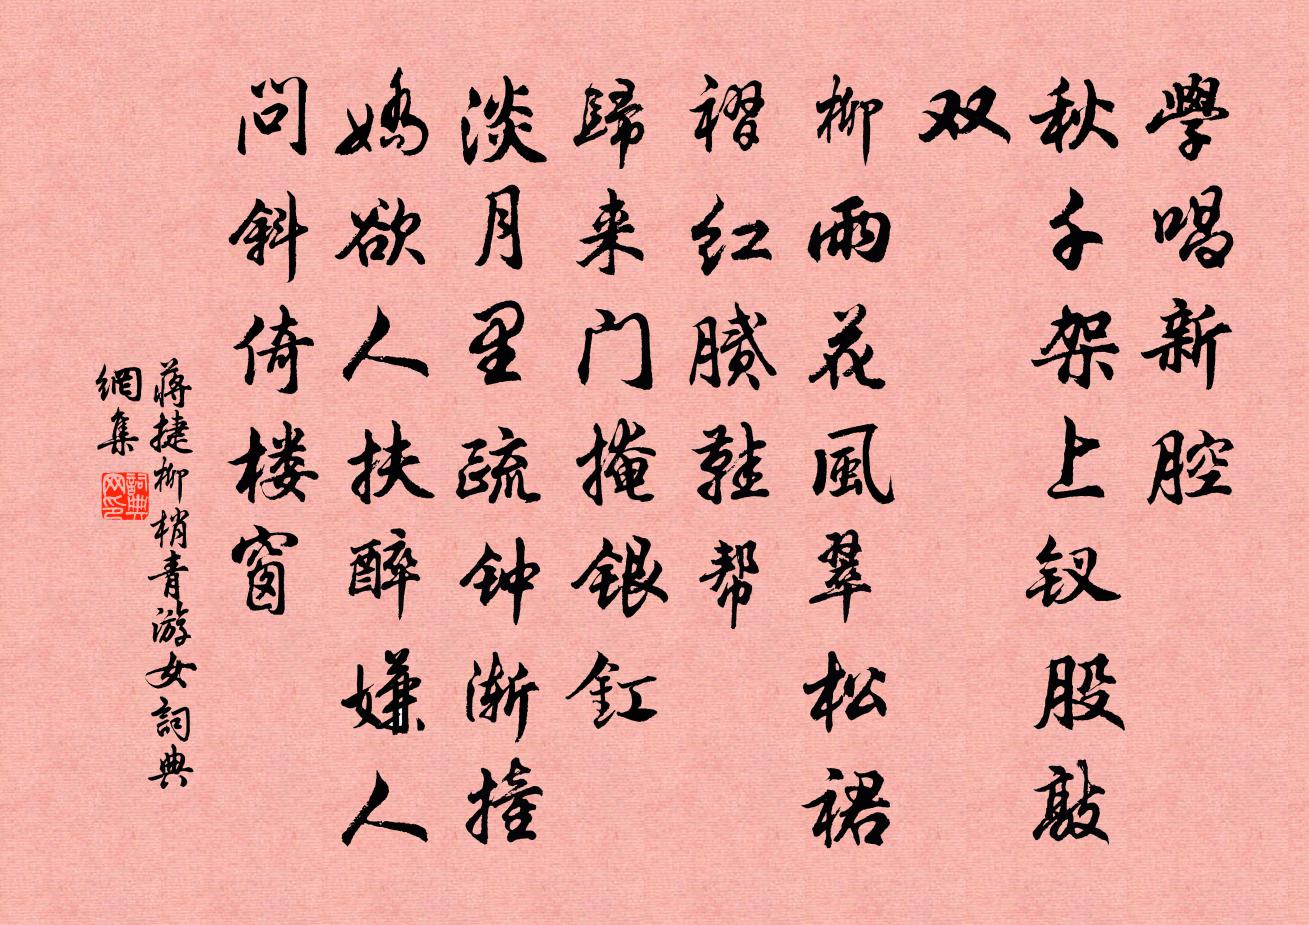 學唱新腔
秋千架上钗股敲
双
柳雨花風翠松裙
褶红腻鞋帮
歸来门掩銀釭
淡月里疏钟渐撞
嬌欲人扶醉嫌人
问斜倚楼窗
蔣捷柳梢青游女詞典
網集
詞典
网印